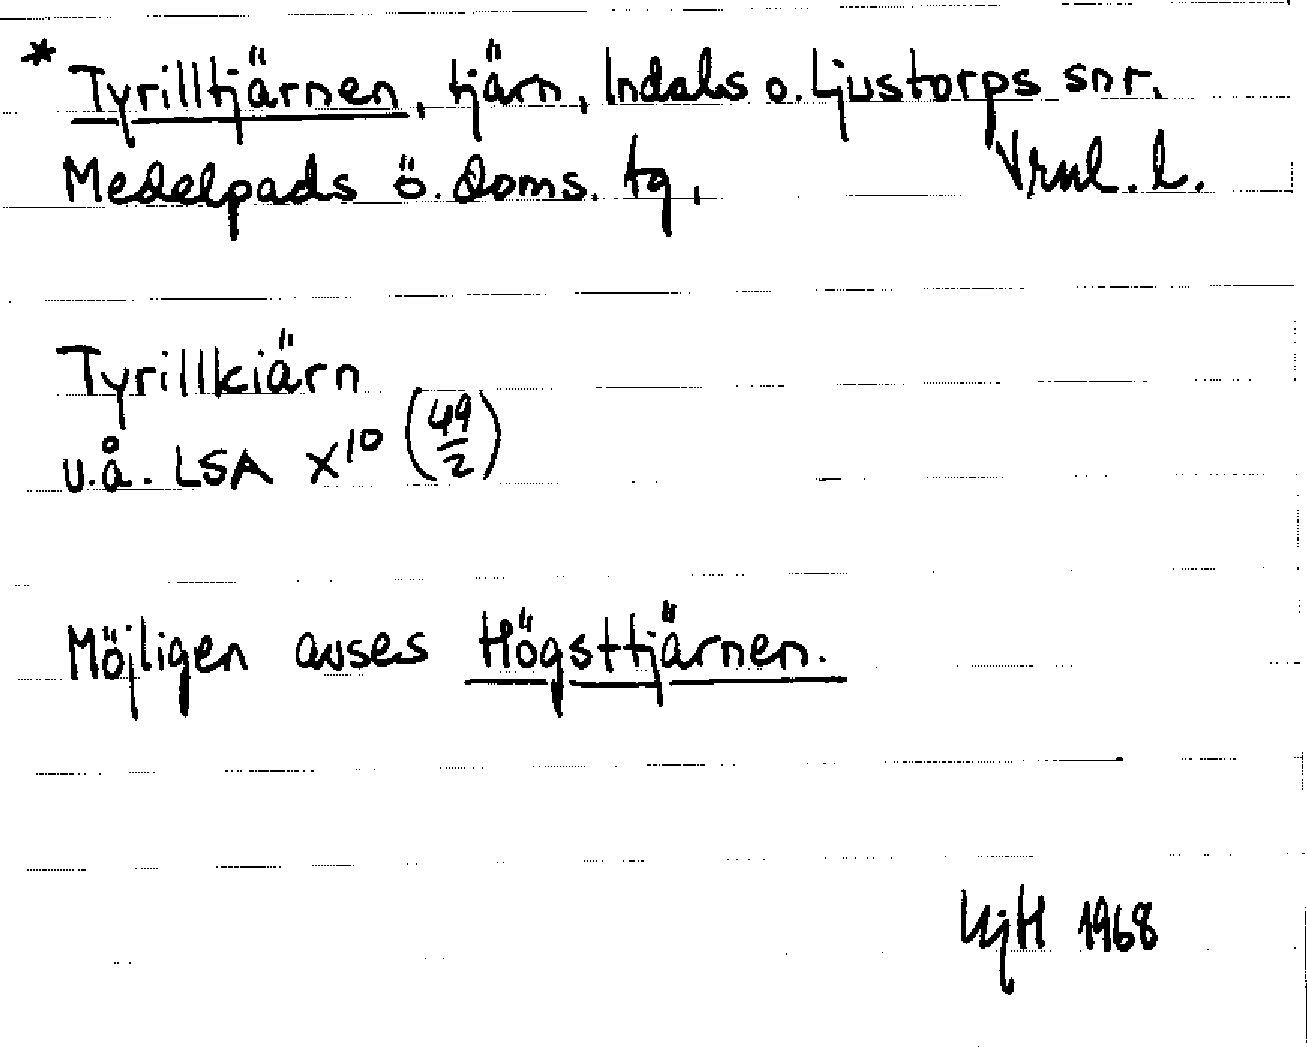 * Tyrilltjärnen, tjärn, Indals o. Ljustorps snr.
Medelpads ö. doms. tg, Vrnl. l.
Tyrillkiärn
u.å. LSA X10 (49/2)
Möjligen avses Högsttjärnen.
1968